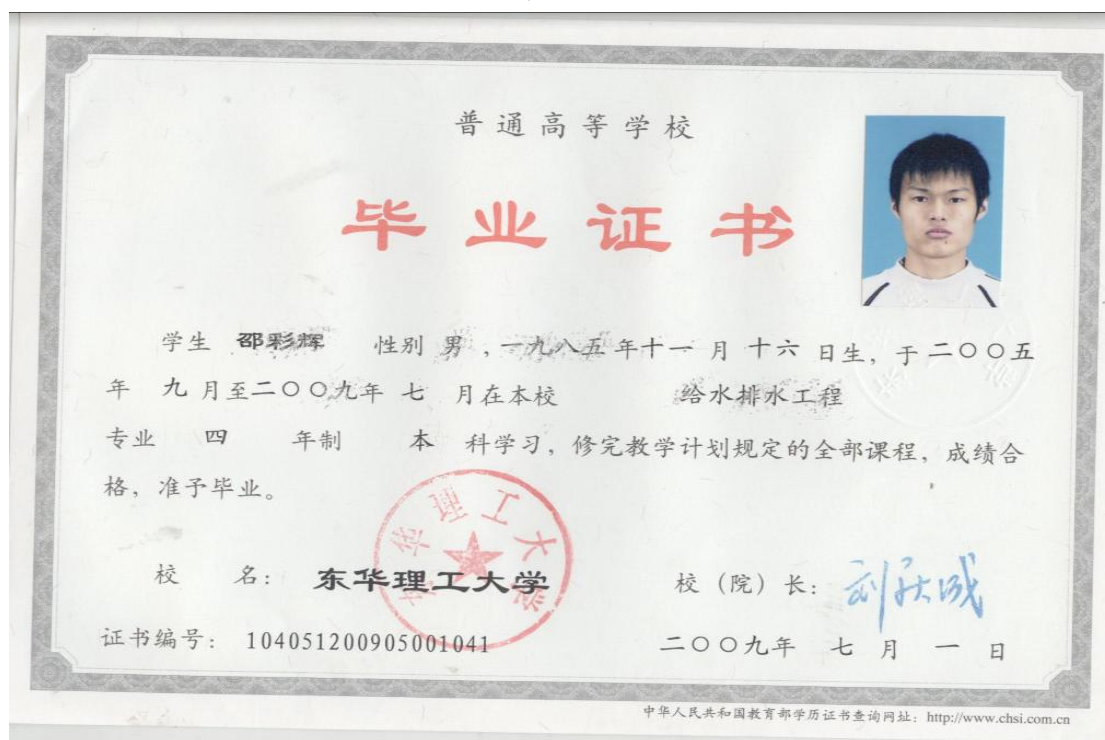 普通高等学校
毕业证书
学生 邵彩辉 性别 男 ，一九八五年十一月十六日生，于二〇〇五
年 九 月至二〇〇九年 七 月在本校 给水排水工程
专业 四 年制 本 科学习，修完教学计划规定的全部课程，成绩合
格，准予毕业。
东华理工大学
校 名： 东华理工大学 校（院）长：
证书编号： 104051200905001041 二〇〇九年 七 月 一 日
中华人民共和国教育部学历证书查询网址：http://www.chsi.com.cn